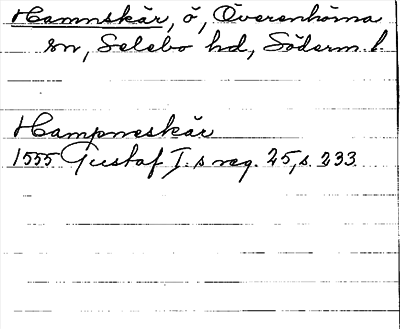 Hamnskär, ö, Överenhörna
sn, Selebo hd, Söderm. l.
Hampneskär
1555 Gustaf I.s reg. 25, s. 233